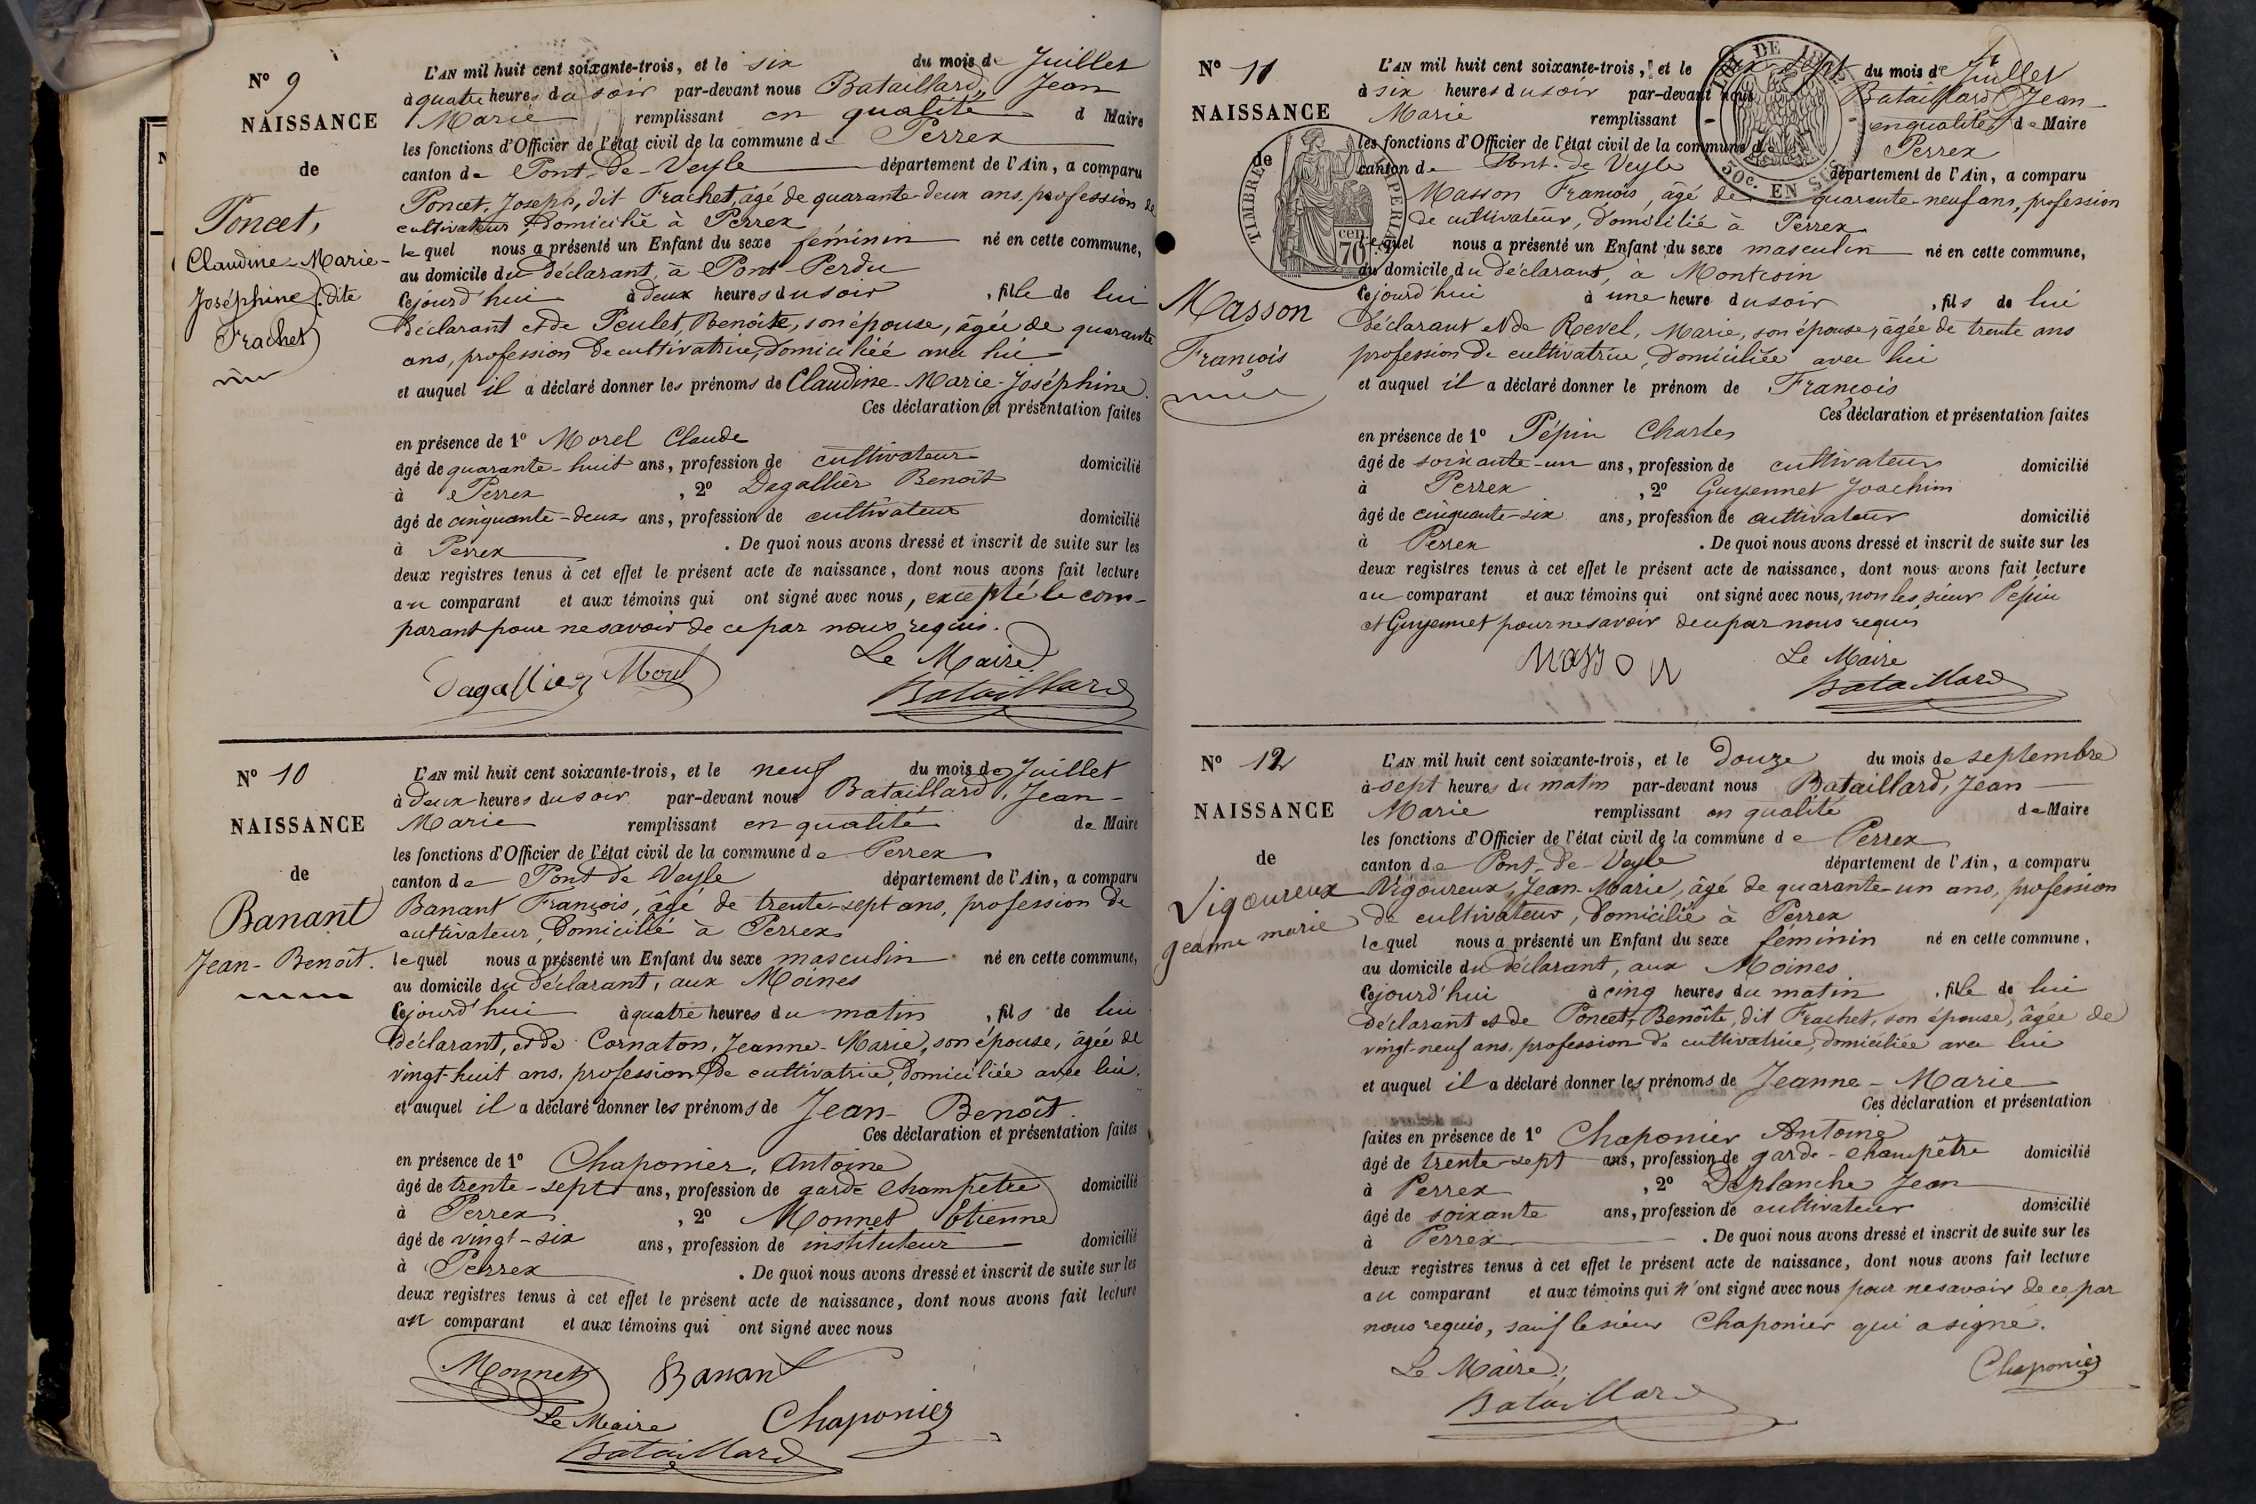 N° 9
NAISSANCE
de
Poncet,
Claudine-Marie-
Joséphine, dite
Frachet
L'AN mil huit cent soixante-trois, et le six du mois de Juillet
à quatre heures du soir par-devant nous Bataillard, Jean
Marie remplissant en qualité d Maire
les fonctions d'Officier de l'état civil de la commune de Perrex
canton de Pont-de-Veyle département de l'Ain, a comparu
Poncet, Joseph, dit Frachet, âgé de quarante-deux ans, profession de
cultivateur, domicilié à Perrex
lequel nous a présenté un Enfant du sexe féminin né en cette commune,
au domicile du déclarant, à Pont-Perdu
cejourd'hui à deux heures du soir, fille de lui
déclarant et de Peulet, Benoîte, son épouse, âgée de quarante
ans, profession de cultivatrice, domiciliée avec lui
et auquel il a déclaré donner les prénoms de Claudine-Marie-Joséphine.
Ces déclaration et présentation faites
en présence de 1° Morel Claude
âgé de quarante-huit ans, profession de cultivateur domicilié
à Perrex, 2° Dagallier Benoît
âgé de cinquante-deux ans, profession de cultivateur domicilié
à Perrex. De quoi nous avons dressé et inscrit de suite sur les
deux registres tenus à cet effet le présent acte de naissance, dont nous avons fait lecture
au comparant et aux témoins qui ont signé avec nous, excepté le com-
parant pour ne savoir de ce par nous requis.
Le Maire
Dagallier Morel Bataillard
N° 10
NAISSANCE
de
Banant
Jean-Benoît.
L'AN mil huit cent soixante-trois, et le neuf du mois de Juillet
à deux heures du soir par-devant nous Bataillard, Jean-
Marie remplissant en qualité de Maire
les fonctions d'Officier de l'état civil de la commune de Perrex
canton de Pont de Veyle département de l'Ain, a comparu
Banant François, âgé de trente-sept ans, profession de
cultivateur, domicilié à Perrex
lequel nous a présenté un Enfant du sexe masculin né en cette commune,
au domicile du déclarant, aux Moines
cejourd'hui à quatre heures du matin, fils de lui
déclarant, et de Cornaton, Jeanne-Marie, son épouse, âgée de
vingt-huit ans, profession de cultivatrice, domiciliée avec lui.
et auquel il a déclaré donner les prénoms de Jean-Benoît.
Ces déclaration et présentation faites
en présence de 1° Chaponier, Antoine
âgé de trente-sept ans, profession de garde champêtre domicilié
à Perrex, 2° Monnet Etienne
âgé de vingt-six ans, profession de instituteur domicilié
à Perrex. De quoi nous avons dressé et inscrit de suite sur les
deux registres tenus à cet effet le présent acte de naissance, dont nous avons fait lecture
au comparant et aux témoins qui ont signé avec nous
Monnet Banant
Le Maire Chaponier
Bataillard
N° 11
NAISSANCE
de
Masson
François
TIMBRE IMPÉRIAL
cen.
70
50c. EN SUS
L'AN mil huit cent soixante-trois, et le dix-sept du mois de Juillet
à six heures du soir par-devant nous Bataillard Jean-
Marie remplissant en qualité de Maire
les fonctions d'Officier de l'état civil de la commune de Perrex
canton de Pont-de Veyle département de l'Ain, a comparu
Masson François, âgé de quarante-neuf ans, profession
de cultivateur, domicilié à Perrex
lequel nous a présenté un Enfant du sexe masculin né en cette commune,
au domicile du déclarant, à Montesin
cejourd'hui à une heure du soir, fils de lui
déclarant et de Revel, Marie, son épouse, âgée de trente ans
profession de cultivatrice, domiciliée avec lui
et auquel il a déclaré donner le prénom de François
Ces déclaration et présentation faites
en présence de 1° Pépin Charles
âgé de soixante-un ans, profession de cultivateur domicilié
à Perrex, 2° Guyennet Joachim
âgé de cinquante-six ans, profession de cultivateur domicilié
à Perrex. De quoi nous avons dressé et inscrit de suite sur les
deux registres tenus à cet effet le présent acte de naissance, dont nous avons fait lecture
au comparant et aux témoins qui ont signé avec nous, non les sieurs Pépin
et Guyennet pour ne savoir de ce par nous requis
Le Maire
Masson Bataillard
N° 12
NAISSANCE
de
Vigoureux
jeanne marie
L'AN mil huit cent soixante-trois, et le douze du mois de septembre
à sept heures du matin par-devant nous Bataillard, Jean
Marie remplissant en qualité de Maire
les fonctions d'Officier de l'état civil de la commune de Perrex
canton de Pont-de-Veyle département de l'Ain, a comparu
Vigoureux, Jean-Marie, âgé de quarante-un ans, profession
de cultivateur, domicilié à Perrex
lequel nous a présenté un Enfant du sexe féminin né en cette commune,
au domicile du déclarant, aux Moines
cejourd'hui à cinq heures du matin, fille de lui
déclarant et de Poncet, Benoîte, dit Frachet, son épouse, âgée de
vingt-neuf ans, profession de cultivatrice, domiciliée avec lui
et auquel il a déclaré donner les prénoms de Jeanne-Marie
Ces déclaration et présentation
faites en présence de 1° Chaponier Antoine
âgé de trente-sept ans, profession de garde-champêtre domicilié
à Perrex, 2° Deplanche Jean
âgé de soixante ans, profession de cultivateur domicilié
à Perrex. De quoi nous avons dressé et inscrit de suite sur les
deux registres tenus à cet effet le présent acte de naissance, dont nous avons fait lecture
au comparant et aux témoins qui n'ont signé avec nous pour ne savoir de ce par
nous requis, sauf le sieur Chaponier qui a signé.
Le Maire; Chaponier
Bataillard